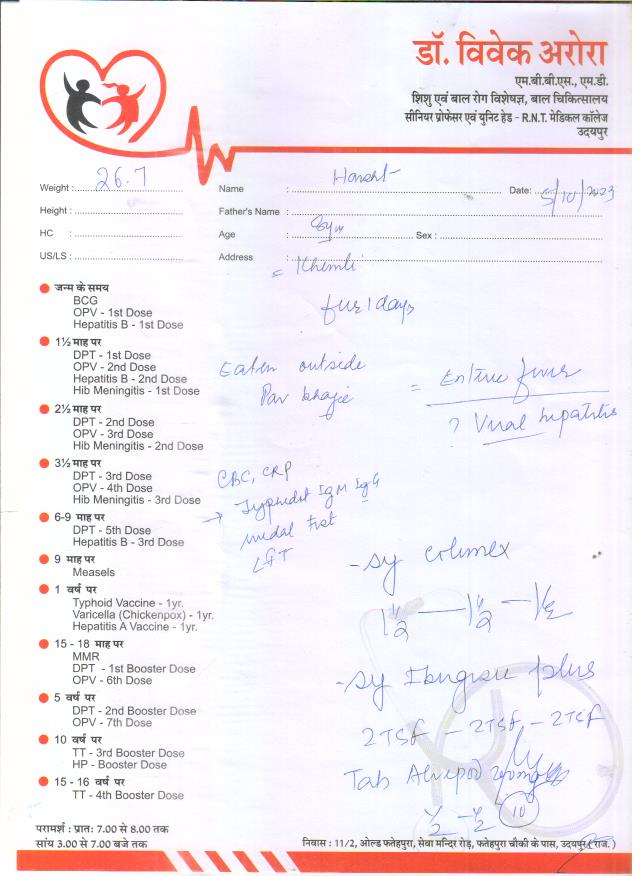 डॉ. विवेक अरोरा
एम.बी.बी.एस., एम.डी.
शिशु एवं बाल रोग विशेषज्ञ, बाल चिकित्सालय
सीनियर प्रोफेसर एवं युनिट हेड - R.N.T. मेडिकल कॉलेज
उदयपुर
Weight : 26.7
Name :
Date: 5/10/2023
Height :
Father's Name :
HC :
Age : 8yrs
Sex :
US/LS :
Address : Khemli
जन्म के समय
BCG
OPV - 1st Dose
Hepatitis B - 1st Dose
1½ माह पर
DPT - 1st Dose
OPV - 2nd Dose
Hepatitis B - 2nd Dose
Hib Meningitis - 1st Dose
2½ माह पर
DPT - 2nd Dose
OPV - 3rd Dose
Hib Meningitis - 2nd Dose
3½ माह पर
DPT - 3rd Dose
OPV - 4th Dose
Hib Meningitis - 3rd Dose
6-9 माह पर
DPT - 5th Dose
Hepatitis B - 3rd Dose
9 माह पर
Measels
1 वर्ष पर
Typhoid Vaccine - 1yr.
Varicella (Chickenpox) - 1yr.
Hepatitis A Vaccine - 1yr.
15 - 18 माह पर
MMR
DPT - 1st Booster Dose
OPV - 6th Dose
5 वर्ष पर
DPT - 2nd Booster Dose
OPV - 7th Dose
10 वर्ष पर
TT - 3rd Booster Dose
HP - Booster Dose
15 - 16 वर्ष पर
TT - 4th Booster Dose
Eaten outside
Pav bhajie
= Enteric fever
? Viral hepatitis
CBC, CRP
→ Typhidot IgM IgG
widal Test
LFT
- Sy Colimex
1½ — 1½ — 1½
- Sy Ibugesic plus
2TSF — 2TSF — 2TSF
Tab
½ — ½ 10
परामर्श : प्रातः 7.00 से 8.00 तक
सांय 3.00 से 7.00 बजे तक
निवास : 11/2, ओल्ड फतेहपुरा, सेवा मन्दिर रोड़, फतेहपुरा चौकी के पास, उदयपुर (राज.)